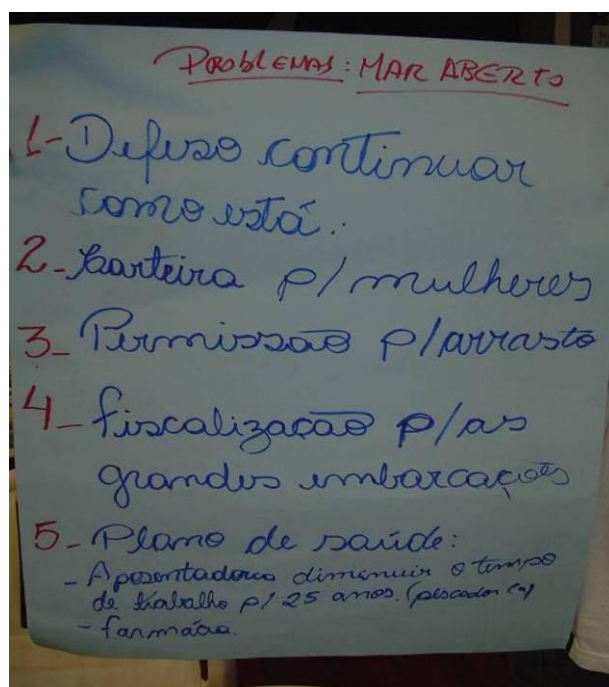 PROBLEMAS: MAR ABERTO
1- Defeso continuar
como está.
2- Carteira p/ mulheres
3- Permissão p/ arrasto
4- fiscalização p/ as
grandes embarcações
5- Plano de saúde:
- Aposentadoria dimenuir o tempo
de trabalho p/ 25 anos. (pescador (a)
- farmácia.